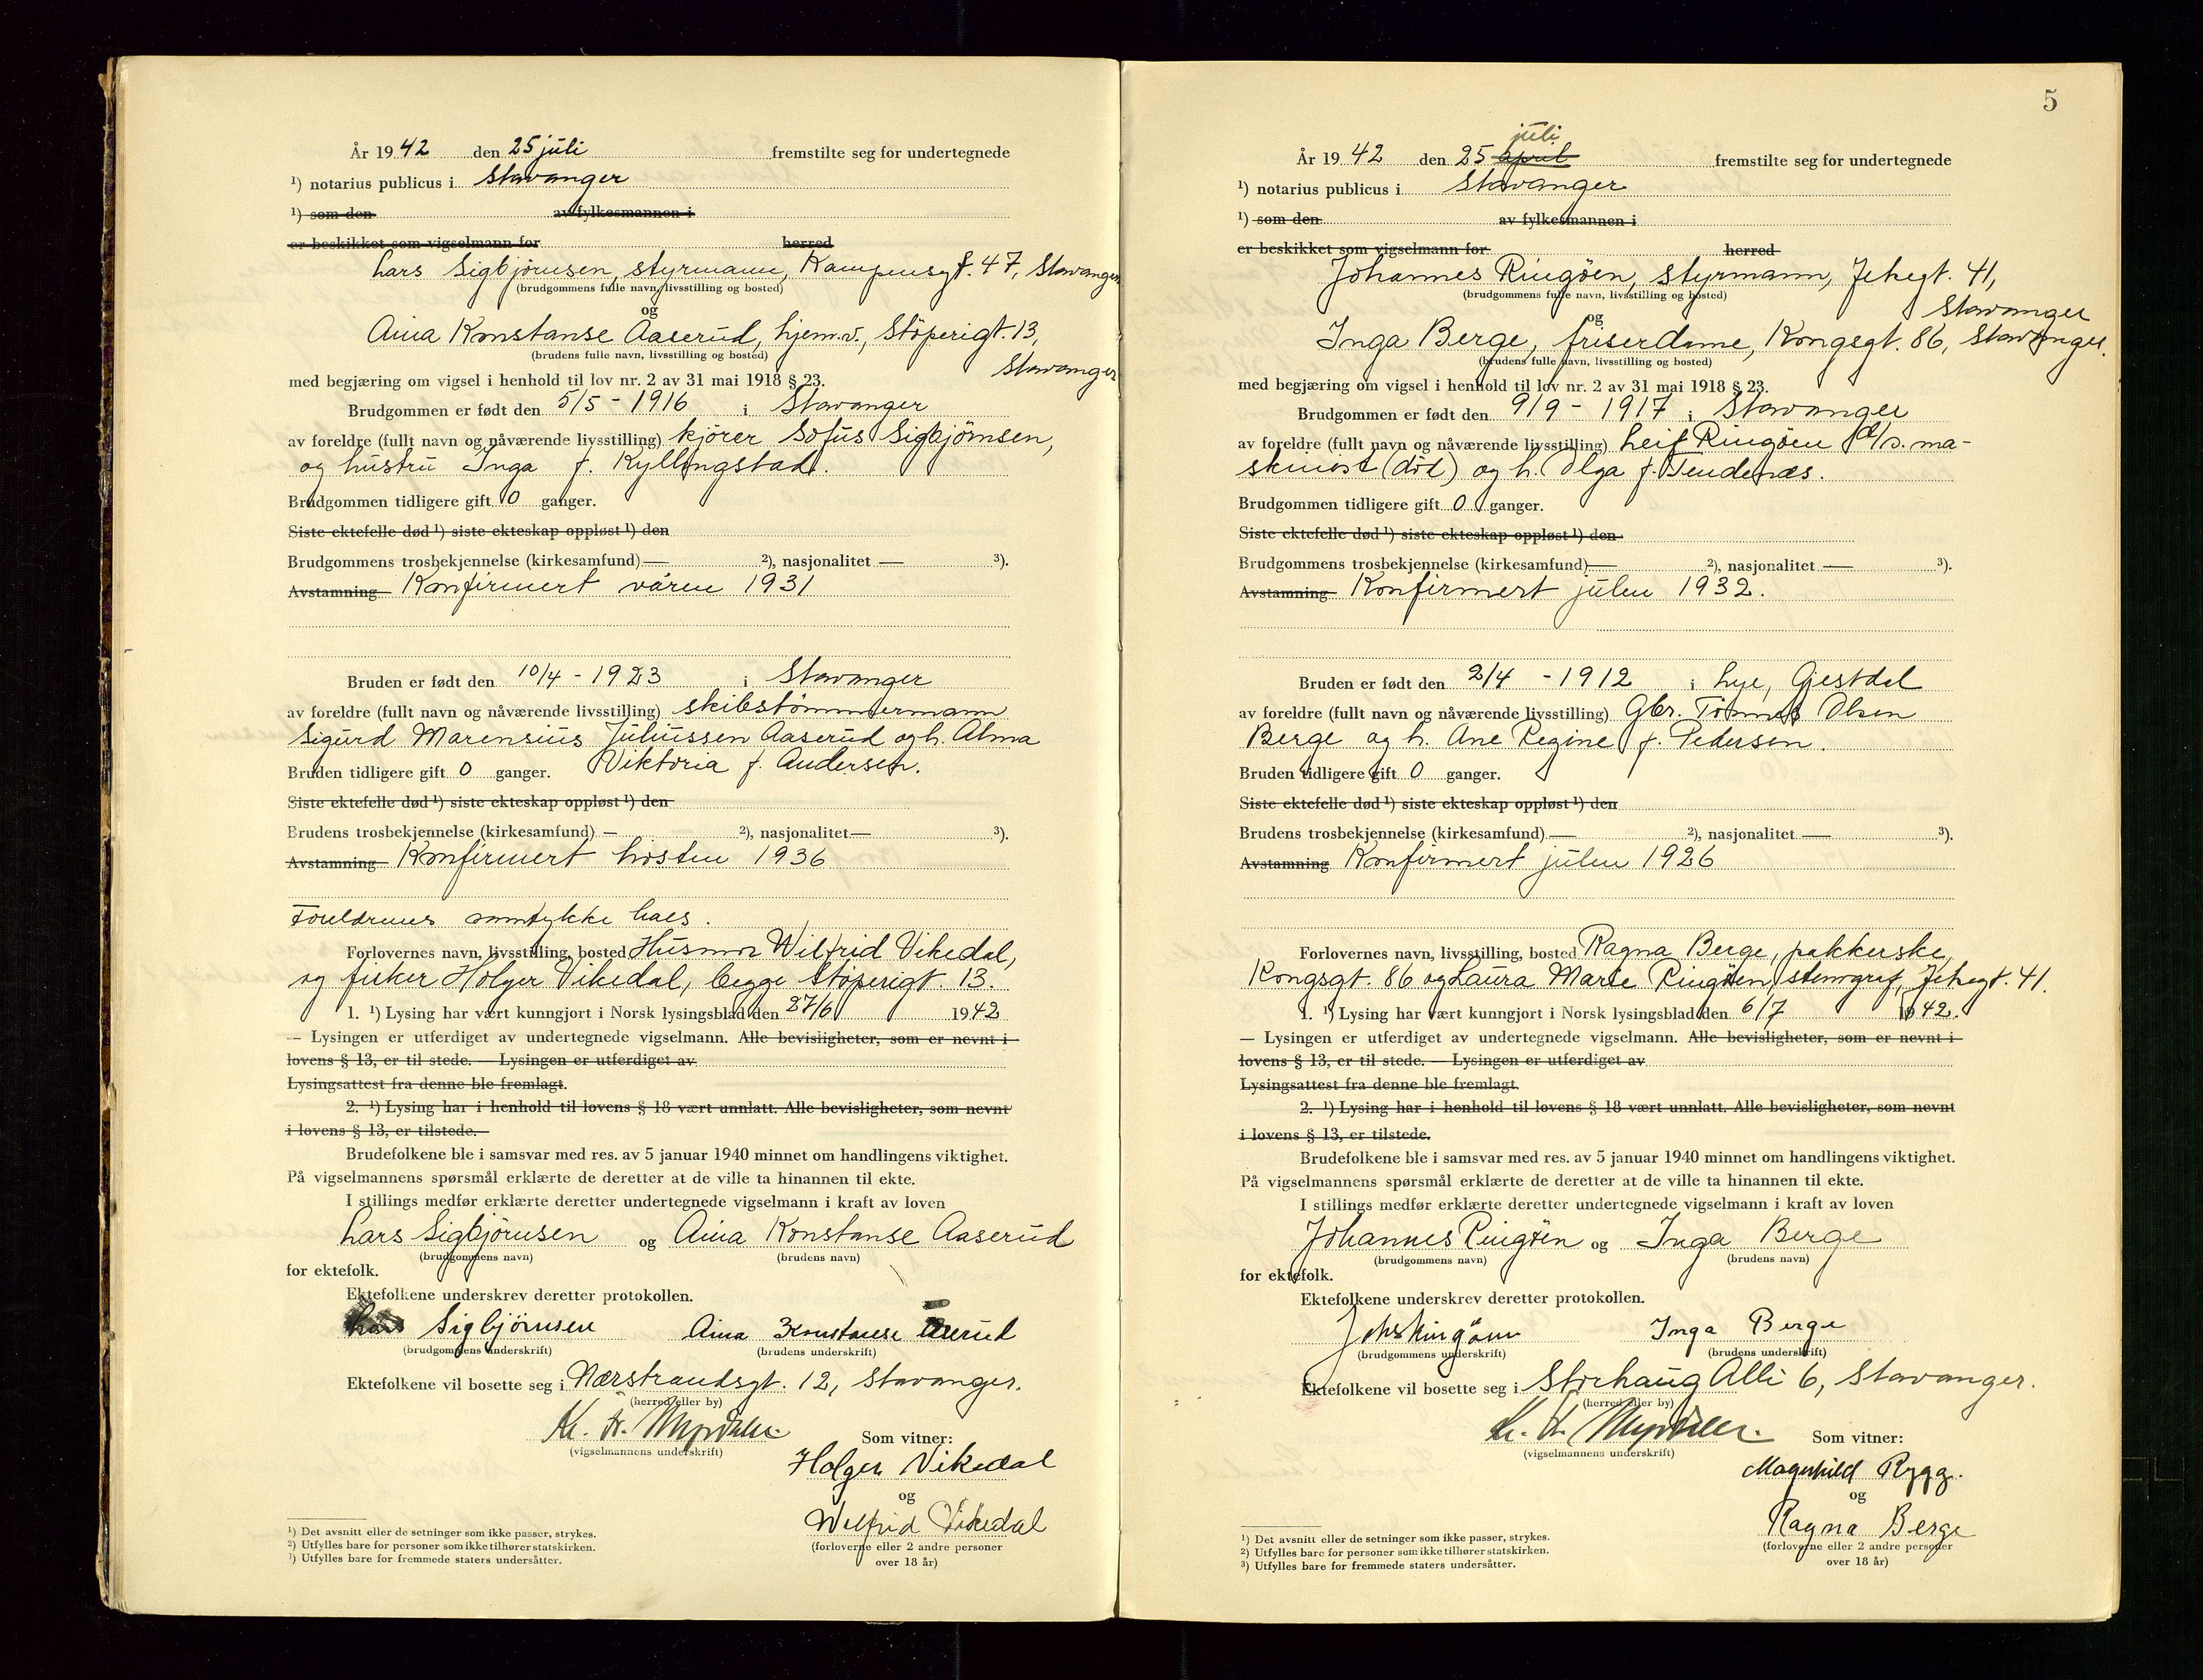 År 1942 den 25 juli fremstilte seg for undertegnede
¹) notarius publicus i Stavanger
¹) som den av fylkesmannen i
er beskikket som vigselmann for herred
Lars Sigbjörnsen, styrmann, Kampensgt. 47, Stavanger
(brudgommens fulle navn, livsstilling og bosted)
og
Aina Konstanse Aaserud, hjem.v., Støperigt. 13,
(brudens fulle navn, livsstilling og bosted)
Stavanger
med begjæring om vigsel i henhold til lov nr. 2 av 31 mai 1918 § 23.
Brudgommen er født den 5/5 - 1916 i Stavanger
av foreldre (fullt navn og nåværende livsstilling) kjörer Sofus Sigbjörnsen,
og hustru Inga f. Kyllingstad.
Brudgommen tidligere gift 0 ganger.
Siste ektefelle død ¹) siste ekteskap oppløst ¹) den
Brudgommens trosbekjennelse (kirkesamfund) — ²), nasjonalitet — ³).
Avstamning Konfirmert våren 1931
Bruden er født den 10/4 - 1923 i Stavanger
av foreldre (fullt navn og nåværende livsstilling) skibstömmermann
Sigurd Marensius Juliussen Aaserud og h. Alma
Bruden tidligere gift 0 ganger. Viktoria f. Andersen.
Siste ektefelle død ¹) siste ekteskap oppløst ¹) den
Brudens trosbekjennelse (kirkesamfund) — ²), nasjonalitet — ³).
Avstamning Konfirmert hösten 1936
Foreldrenes samtykke haes.
Forlovernes navn, livsstilling, bosted Husmor Wilfrid Vikedal,
og fisker Holger Vikedal, begge Støperigt. 13.
1. ¹) Lysing har vært kunngjort i Norsk lysingsblad den 27/6 1942
— Lysingen er utferdiget av undertegnede vigselmann. Alle bevisligheter, som er nevnt i
lovens § 13, er til stede. — Lysingen er utferdiget av
Lysingsattest fra denne ble fremlagt.
2. ¹) Lysing har i henhold til lovens § 18 vært unnlatt. Alle bevisligheter, som nevnt
i lovens § 13, er tilstede. —
Brudefolkene ble i samsvar med res. av 5 januar 1940 minnet om handlingens viktighet.
På vigselmannens spørsmål erklærte de deretter at de ville ta hinannen til ekte.
I stillings medfør erklærte deretter undertegnede vigselmann i kraft av loven
Lars Sigbjörnsen og Aina Konstanse Aaserud
(brudgommens navn) (brudens navn)
for ektefolk.
Ektefolkene underskrev deretter protokollen.
Lars Sigbjörnsen Aina Konstanse Aaserud
(brudgommens underskrift) (brudens underskrift)
Ektefolkene vil bosette seg i Nærstrandsgt. 12, Stavanger.
(herred eller by)
(vigselmannens underskrift) Som vitner:
Holger Vikedal
og
Wilfrid Vikedal
(forloverne eller 2 andre personer
over 18 år)
¹) Det avsnitt eller de setninger som ikke passer, strykes.
²) Utfylles bare for personer som ikke tilhører statskirken.
³) Utfylles bare for fremmede staters undersåtter.
5
juli
År 1942 den 25 april fremstilte seg for undertegnede
¹) notarius publicus i Stavanger
¹) som den av fylkesmannen i
er beskikket som vigselmann for herred
Johannes Ringöen, styrmann, Jelsegt. 41,
(brudgommens fulle navn, livsstilling og bosted)
Stavanger
og
Inga Berge, friserdame, Kongsgt. 86, Stavanger.
(brudens fulle navn, livsstilling og bosted)
med begjæring om vigsel i henhold til lov nr. 2 av 31 mai 1918 § 23.
Brudgommen er født den 9/9 - 1917 i Stavanger
av foreldre (fullt navn og nåværende livsstilling) Leif Ringöen d/s. ma-
skinist (död) og h. Olga f. Tendenæs.
Brudgommen tidligere gift 0 ganger.
Siste ektefelle død ¹) siste ekteskap oppløst ¹) den
Brudgommens trosbekjennelse (kirkesamfund) — ²), nasjonalitet — ³).
Avstamning Konfirmert julen 1932.
Bruden er født den 2/4 - 1912 i Lye, Gjestdal
av foreldre (fullt navn og nåværende livsstilling) Gbr. Tönnes Olsen
Berge og h. Ane Regine f. Pedersen.
Bruden tidligere gift 0 ganger.
Siste ektefelle død ¹) siste ekteskap oppløst ¹) den
Brudens trosbekjennelse (kirkesamfund) — ²), nasjonalitet — ³).
Avstamning Konfirmert julen 1926
Forlovernes navn, livsstilling, bosted Ragna Berge, pakkerske,
Kongsgt. 86 og Laura Marie Ringöen, stenograf, Jelsegt. 41.
1. ¹) Lysing har vært kunngjort i Norsk lysingsblad den 6/7 1942.
— Lysingen er utferdiget av undertegnede vigselmann. Alle bevisligheter, som er nevnt i
lovens § 13, er til stede. — Lysingen er utferdiget av
Lysingsattest fra denne ble fremlagt.
2. ¹) Lysing har i henhold til lovens § 18 vært unnlatt. Alle bevisligheter, som nevnt
i lovens § 13, er tilstede.
Brudefolkene ble i samsvar med res. av 5 januar 1940 minnet om handlingens viktighet.
På vigselmannens spørsmål erklærte de deretter at de ville ta hinannen til ekte.
I stillings medfør erklærte deretter undertegnede vigselmann i kraft av loven
Johannes Ringöen og Inga Berge
(brudgommens navn) (brudens navn)
for ektefolk.
Ektefolkene underskrev deretter protokollen.
Johs Ringöen Inga Berge
(brudgommens underskrift) (brudens underskrift)
Ektefolkene vil bosette seg i Storhaug Allé 6, Stavanger.
(herred eller by)
(vigselmannens underskrift) Som vitner:
Magnhild Rygg.
og
Ragna Berge
(forloverne eller 2 andre personer
over 18 år)
¹) Det avsnitt eller de setninger som ikke passer, strykes.
²) Utfylles bare for personer som ikke tilhører statskirken.
³) Utfylles bare for fremmede staters undersåtter.